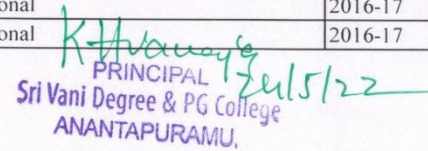 onal 2016-17
onal 2016-17
24/5/22
PRINCIPAL
Sri Vani Degree & PG College
ANANTAPURAMU.